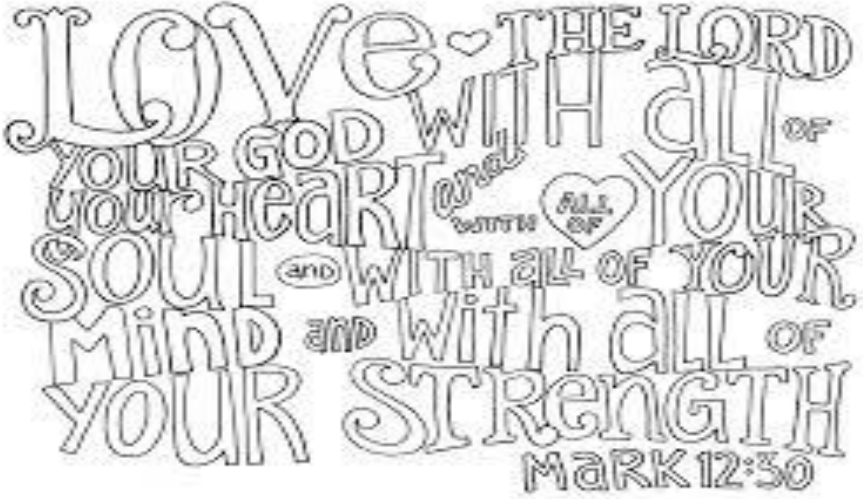 Love THE LORD
YOUR GOD WITH all OF
your HeaRT and WITH ALL OF YOUR
SOUL and WITH all OF YOUR
MinD and With all OF
YOUR STRenGTH
MaRK 12:30